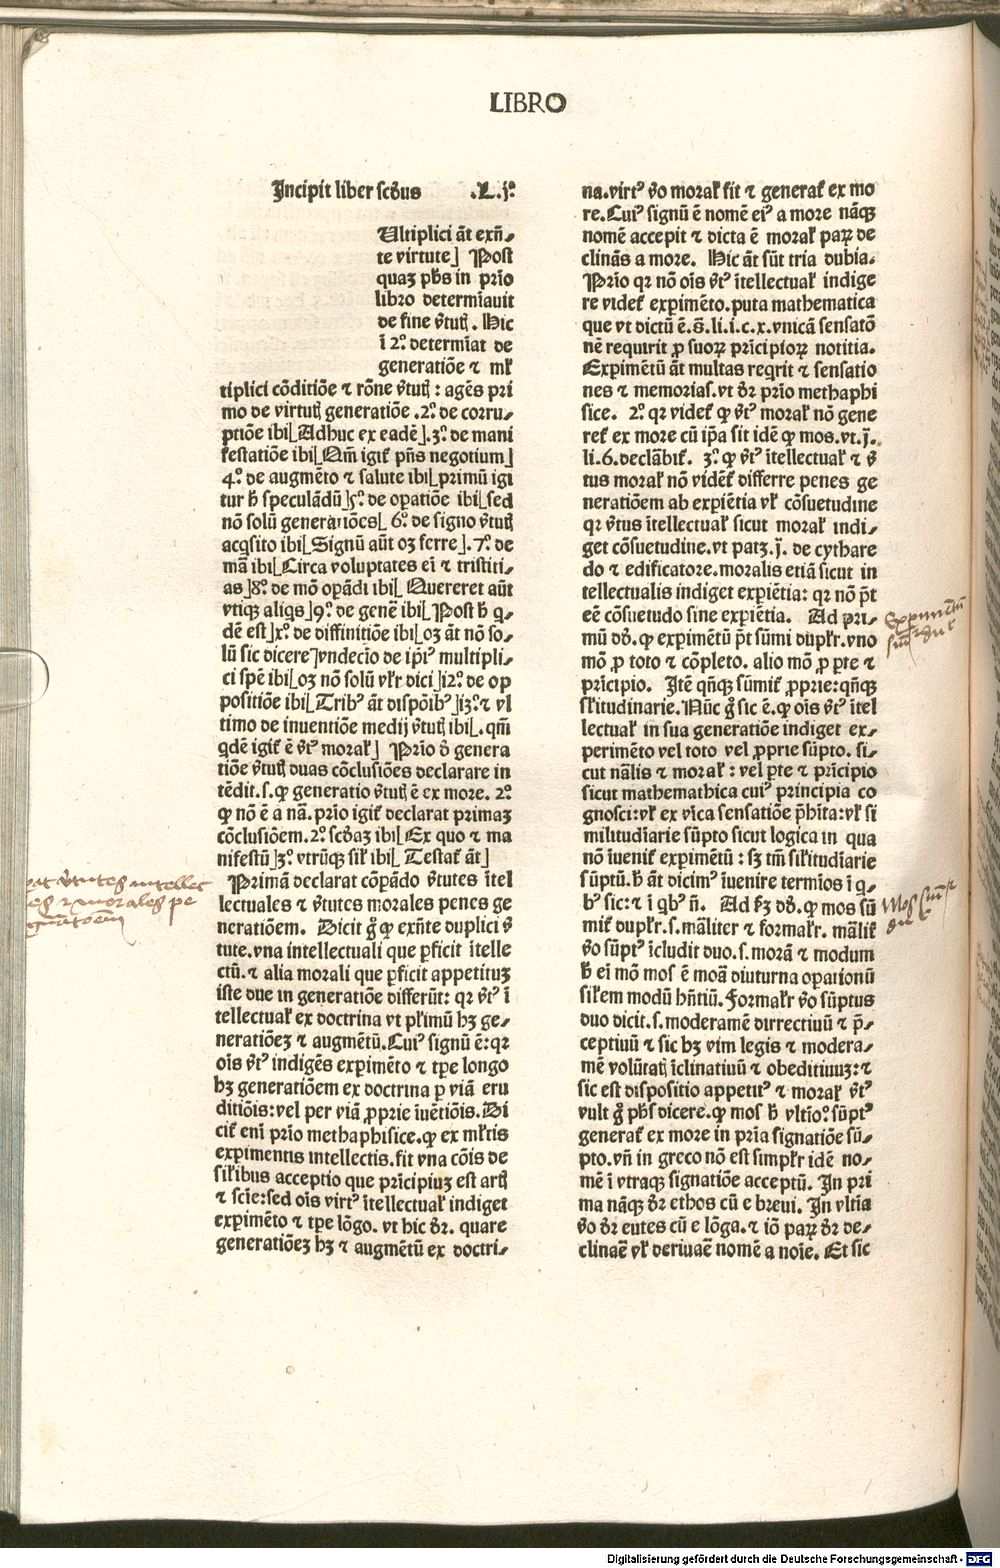 LIBRO
Incipit liber scd̄us .L.jꝰ
Ultiplici āt exn̄-
te virtute] Post
quaꝫ ph̄s in prīo
libro determīauit
de fine v̄tutꝭ. Hic
ī 2.º determīat de
generatiōe ⁊ ml̄-
tiplici cōditiōe ⁊ rōne v̄tutꝭ: agēs pri
mo de virtutꝭ generatiōe .2.º de corru-
ptiōe ibi[Adhuc ex eadē].3.º de mani
festatiōe ibi[Qm̄ igit̄ pn̄s negotium]
4.º de augmēto ⁊ salute ibi[primū igi
tur h̄ speculādū]5.º de oꝑatiōe ibi[sed
nō solū generatiōes[ 6.º de signo v̄tutꝭ
acq̇sito ibi[Signū aūt oꝫ ferre].7.º de
mā ibi[Circa voluptates eī ⁊ tristiti-
as]8.º de mō oꝑādi ibi[Quereret aūt
vtiqꝫ aliq̇s]9.º de genē ibi[Post h̄ q̇-
dē est]x.º de diffinitiōe ibi[oꝫ āt nō so-
lū sic dicere]vndecīo de ip̄iꝰ multipli-
ci spē ibi[oꝫ nō solū vl̄r dici]12.º de op
positiōe ibi[Tribꝰ āt dispōibꝰ]13.º ⁊ vl
timo de inuentiōe medij v̄tutꝭ ibi[.qm̄
q̇dē igit̄ ē v̄tꝰ moral̄] Prīo ḡ genera
tiōe v̄tutꝭ duas cōclusiōes declarare in
tēdit.s.ꝙ generatio v̄tutꝭ ē ex more. 2.º
ꝙ nō ē a nā. prīo igit̄ declarat primaꝫ
cōclusiōem.2.º scd̄aꝫ ibi[Ex quo ⁊ ma
nifestū]3.º vtrūqꝫ sil̄ ibi[ Testat̄ āt]
Primā declarat cōꝑādo v̄tutes ītel
lectuales ⁊ v̄tutes morales penes ge
nerationēm. Dicit g̊ ꝙ exn̄te duplici v̄
tute.vna intellectuali que ꝑficit ītelle
ctū.⁊ alia morali que ꝑficit appetituꝫ
iste due in generatiōe differūt: qꝛ v̄tꝰ ī
tellectual̄ ex doctrina vt pl̄imū hꝫ ge-
neratiōeꝫ ⁊ augmētū.Cuiꝰ signū ē:qꝛ
oīs v̄tꝰ indigēs exꝑimēto ⁊ tꝑe longo
hꝫ generatiōem ex doctrina ꝑ viā eru
ditiōis:vel per viā ꝓprie īuētiōis.Di
cit̄ enī prīo methaphisice.ꝙ ex ml̄tis
exꝑimentis intellectis.fit vna cōis de
sil̄ibus acceptio que prīcipiuꝫ est artꝭ
⁊ scīe:sed oīs virtꝰ ītellectual̄ indiget
exꝑimēto ⁊ tꝑe lōgo. vt hic dr̄. quare
generatiōeꝫ hꝫ ⁊ augmētū ex doctri-
na.virtꝰ v̄o moral̄ fit ⁊ generat̄ ex mo
re.Cuiꝰ signū ē nomē eiꝰ a more nāqꝫ
nomē accepit ⁊ dicta ē moral̄ paꝝ de
clinās a more. Hic āt sūt tria dubia.
Prīo qꝛ nō oīs v̄tꝰ ītellectual̄ indige
re videt̄ exꝑimēto.puta mathematica
que vt dictū ē.s̄.li.i.c.x.vnicā sensatō
nē requirit ꝓ suoꝝ prīcipioꝝ notitia.
Exꝑimētū āt multas req̇rit ⁊ sensatio
nes ⁊ memorias.vt dr̄ prīo methaphi
sice. 2.º qꝛ videt̄ ꝙ v̄tꝰ moral̄ nō gene
ret̄ ex more cū ip̄a sit idē ꝙ mos.vt.j̄.
li.6.declābit̄. 3.º ꝙ v̄tꝰ ītellectual̄ ⁊ v̄
tus moral̄ nō vidēt̄ differre penes ge
neratiōem ab exꝑiētia vl̄ cōsuetudine
qꝛ v̄tus ītellectual̄ sicut moral̄ indi-
get cōsuetudine.vt patꝫ.j̄. de cythare
do ⁊ edificatore.moralis etiā sicut in
tellectualis indiget exꝑiētia: qꝛ nō p̄t
eē cōsuetudo sine exꝑiētia. Ad pri-
mū dd̄. ꝙ exꝑimētū p̄t sūmi dupl̄r.vno
mō ꝓ toto ⁊ cōpleto. alio mō ꝓ ꝑte ⁊
prīcipio. Itē qn̄qꝫ sūmit̄ ꝓprie:qn̄qꝫ
sil̄itudinarie.Nūc g̊ sic ē.ꝙ oīs v̄tꝰ ītel
lectual̄ in sua generatiōe indiget ex-
perimēto vel toto vel ꝓprie sūpto. si-
cut nāl̄is ⁊ moral̄: vel ꝑte ⁊ prīcipio
sicut mathemathica cuiꝰ principia co
gnoscī:vl̄ ex vīca sensatiōe p̄hīta:vl̄ si
militudiarie sūpto sicut logica in qua
nō īuenit̄ exꝑimētū: sꝫ tm̄ sil̄itudiarie
sūptū.h̄ āt dicimꝰ īuenire termīos ī q̇-
bꝰ sic:⁊ ī qbꝰ n̄. Ad scd̄ꝫ dd̄. ꝙ mos sū
mit̄ dupl̄r.s.māliter ⁊ formal̄r. māliꝰ
v̄o sūptꝰ īcludit duo.s.morā ⁊ modum
h̄ ei mō mos ē moā diuturna oꝑationū
sil̄em modū hn̄tiū.Formal̄r v̄o sūptus
duo dicit.s.moderamē dirrectiuū ⁊ p̄-
ceptiuū ⁊ sic hꝫ vim legis ⁊ modera-
mē volūtatꝭ īclinatiuū ⁊ obeditiuuꝫ:⁊
sic est dispositio appetitꝰ ⁊ moral̄ v̄tꝰ
vult g̊ ph̄s dicere.ꝙ mos h̄ vltīo.º sūptꝰ
generat̄ ex more in prīa signatiōe sū-
pto.vn̄ in greco nō est simpl̄r idē no-
mē ī vtraqꝫ signatiōe acceptū. In pri
ma nāqꝫ dr̄ ethos cū e breui. In vltīa
v̄o dr̄ eutes cū e lōga.⁊ iō paꝝ dr̄ de-
clinaē vl̄ deriuaē nomē a noīe. Et sic
Exꝑimētū
sūit̄ dupl̄r
Mos sūit̄
du
v̄tutes intellec
es ⁊ morales pe
gn̄atōem
Digitalisierung gefördert durch die Deutsche Forschungsgemeinschaft - DFG